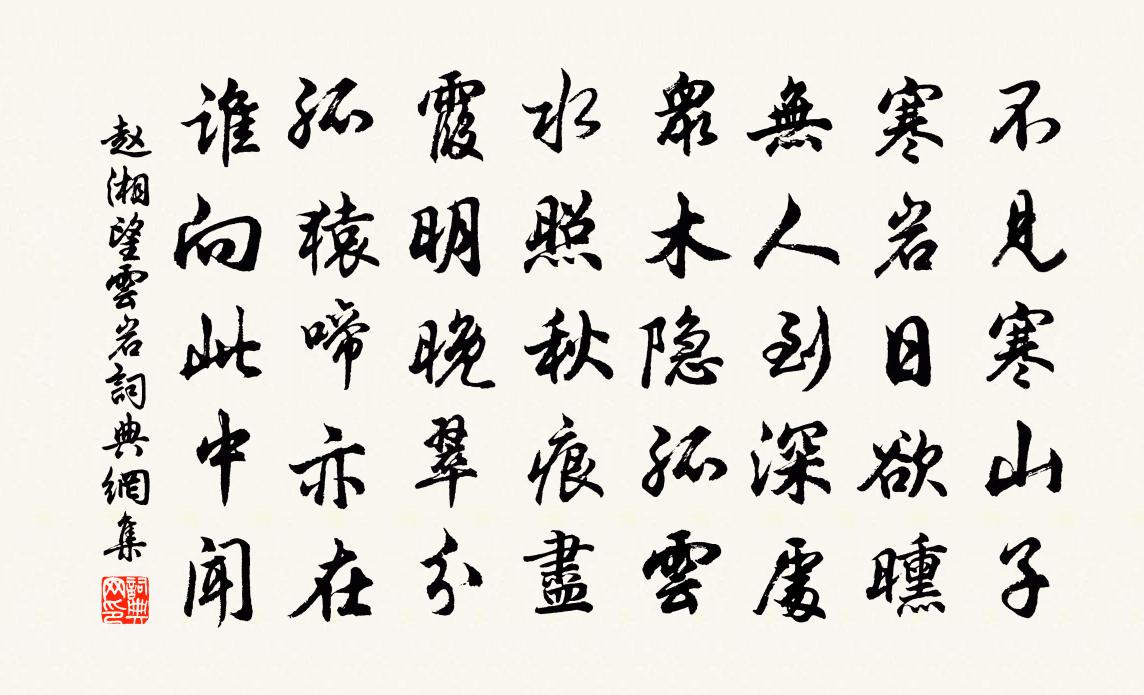 不見寒山子
寒岩日欲曛
無人到深處
衆木隐孤雲
水照秋痕盡
霞明晚翠分
孤猿啼亦在
誰向此中聞
赵湘望雲岩詞典網集
詞典网印